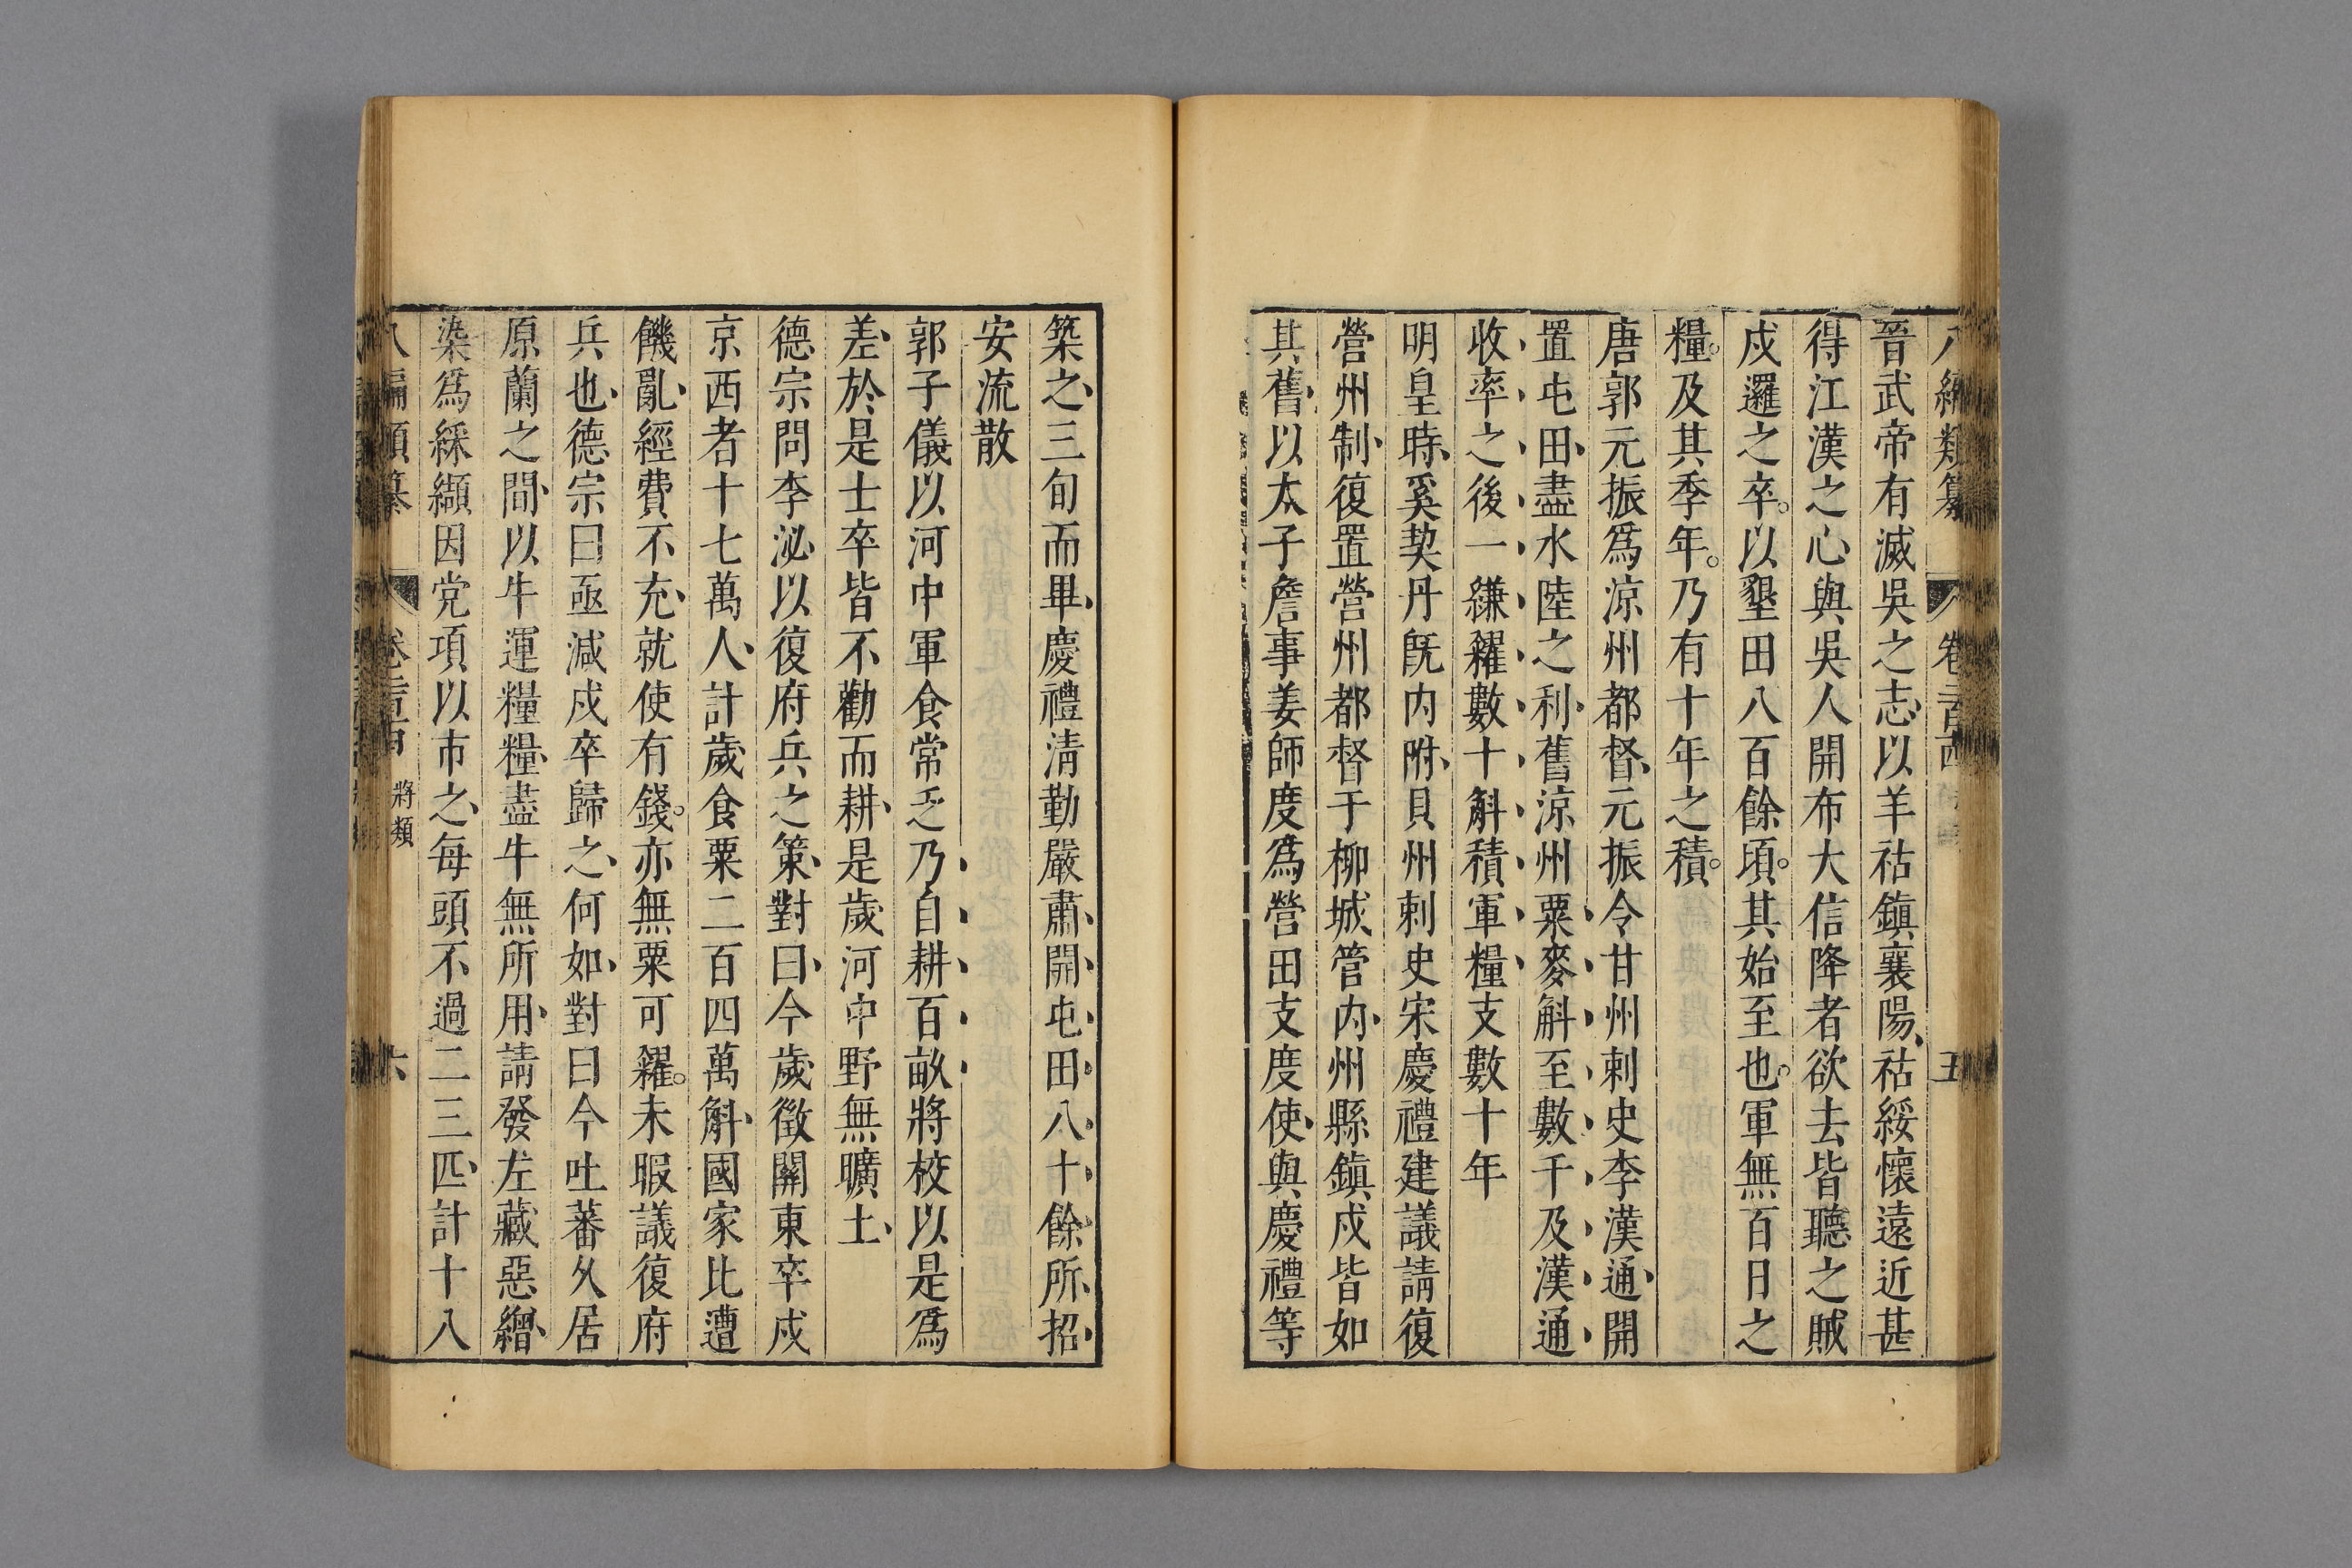 八編類纂 卷 五
晉武帝有滅吳之志以羊祜鎮襄陽祜綏懷遠近甚
得江漢之心與吳人開布大信降者欲去皆聽之賊
戍邏之卒以墾田八百餘頃其始至也軍無百日之
糧及其季年乃有十年之積
唐郭元振爲涼州都督元振令甘州刺史李漢通開
置屯田盡水陸之利舊涼州粟麥斛至數千及漢通
收率之後一縑糴數十斛積軍糧支數十年
明皇時奚契丹旣內附貝州刺史宋慶禮建議請復
營州制復置營州都督于柳城管內州縣鎮戍皆如
其舊以太子詹事姜師度爲營田支度使與慶禮等
築之三旬而畢慶禮淸勤嚴肅開屯田八十餘所招
安流散
郭子儀以河中軍食常乏乃自耕百畝將校以是爲
差於是士卒皆不勸而耕是歲河中野無曠土
德宗問李泌以復府兵之策對曰今歲徵關東卒戍
京西者十七萬人計歲食粟二百四萬斛國家比遭
饑亂經費不充就使有錢亦無粟可糴未暇議復府
兵也德宗曰亟減戍卒歸之何如對曰今吐蕃久居
原蘭之間以牛運糧糧盡牛無所用請發左藏惡繒
染爲綵纈因党項以市之每頭不過二三匹計十八
八編類纂 卷 將類 六